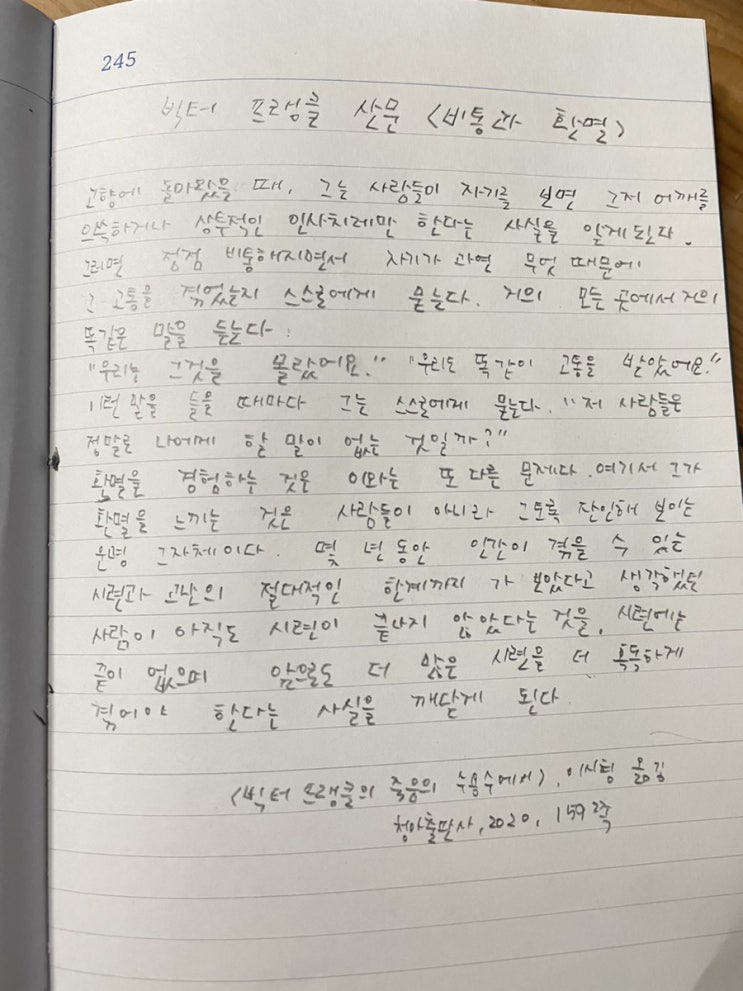 245
빅터 프랭클 산문 <비통과 환멸>
고향에 돌아왔을 때, 그는 사람들이 자기를 보면 그저 어깨를
으쓱하거나 상투적인 인사치레만 한다는 사실을 알게 된다.
그러면 점점 비통해지면서 자기가 과연 무엇 때문에
그 고통을 겪었는지 스스로에게 묻는다. 거의 모든 곳에서 거의
똑같은 말을 듣는다:
"우리는 그것을 몰랐어요." "우리도 똑같이 고통을 받았어요."
이런 말을 들을 때마다 그는 스스로에게 묻는다. "저 사람들은
정말로 나에게 할 말이 없는 것일까?"
환멸을 경험하는 것은 이와는 또 다른 문제다. 여기서 그가
환멸을 느끼는 것은 사람들이 아니라 그토록 잔인해 보이는
운명 그자체이다. 몇 년 동안 인간이 겪을 수 있는
시련과 고난의 절대적인 한계까지 가 보았다고 생각했던
사람이 아직도 시련이 끝나지 않았다는 것을, 시련에는
끝이 없으며 앞으로도 더 많은 시련을 더 혹독하게
겪어야 한다는 사실을 깨닫게 된다.
<빅터 프랭클의 죽음의 수용소에서>, 이시형 옮김
청아출판사, 2020, 159쪽